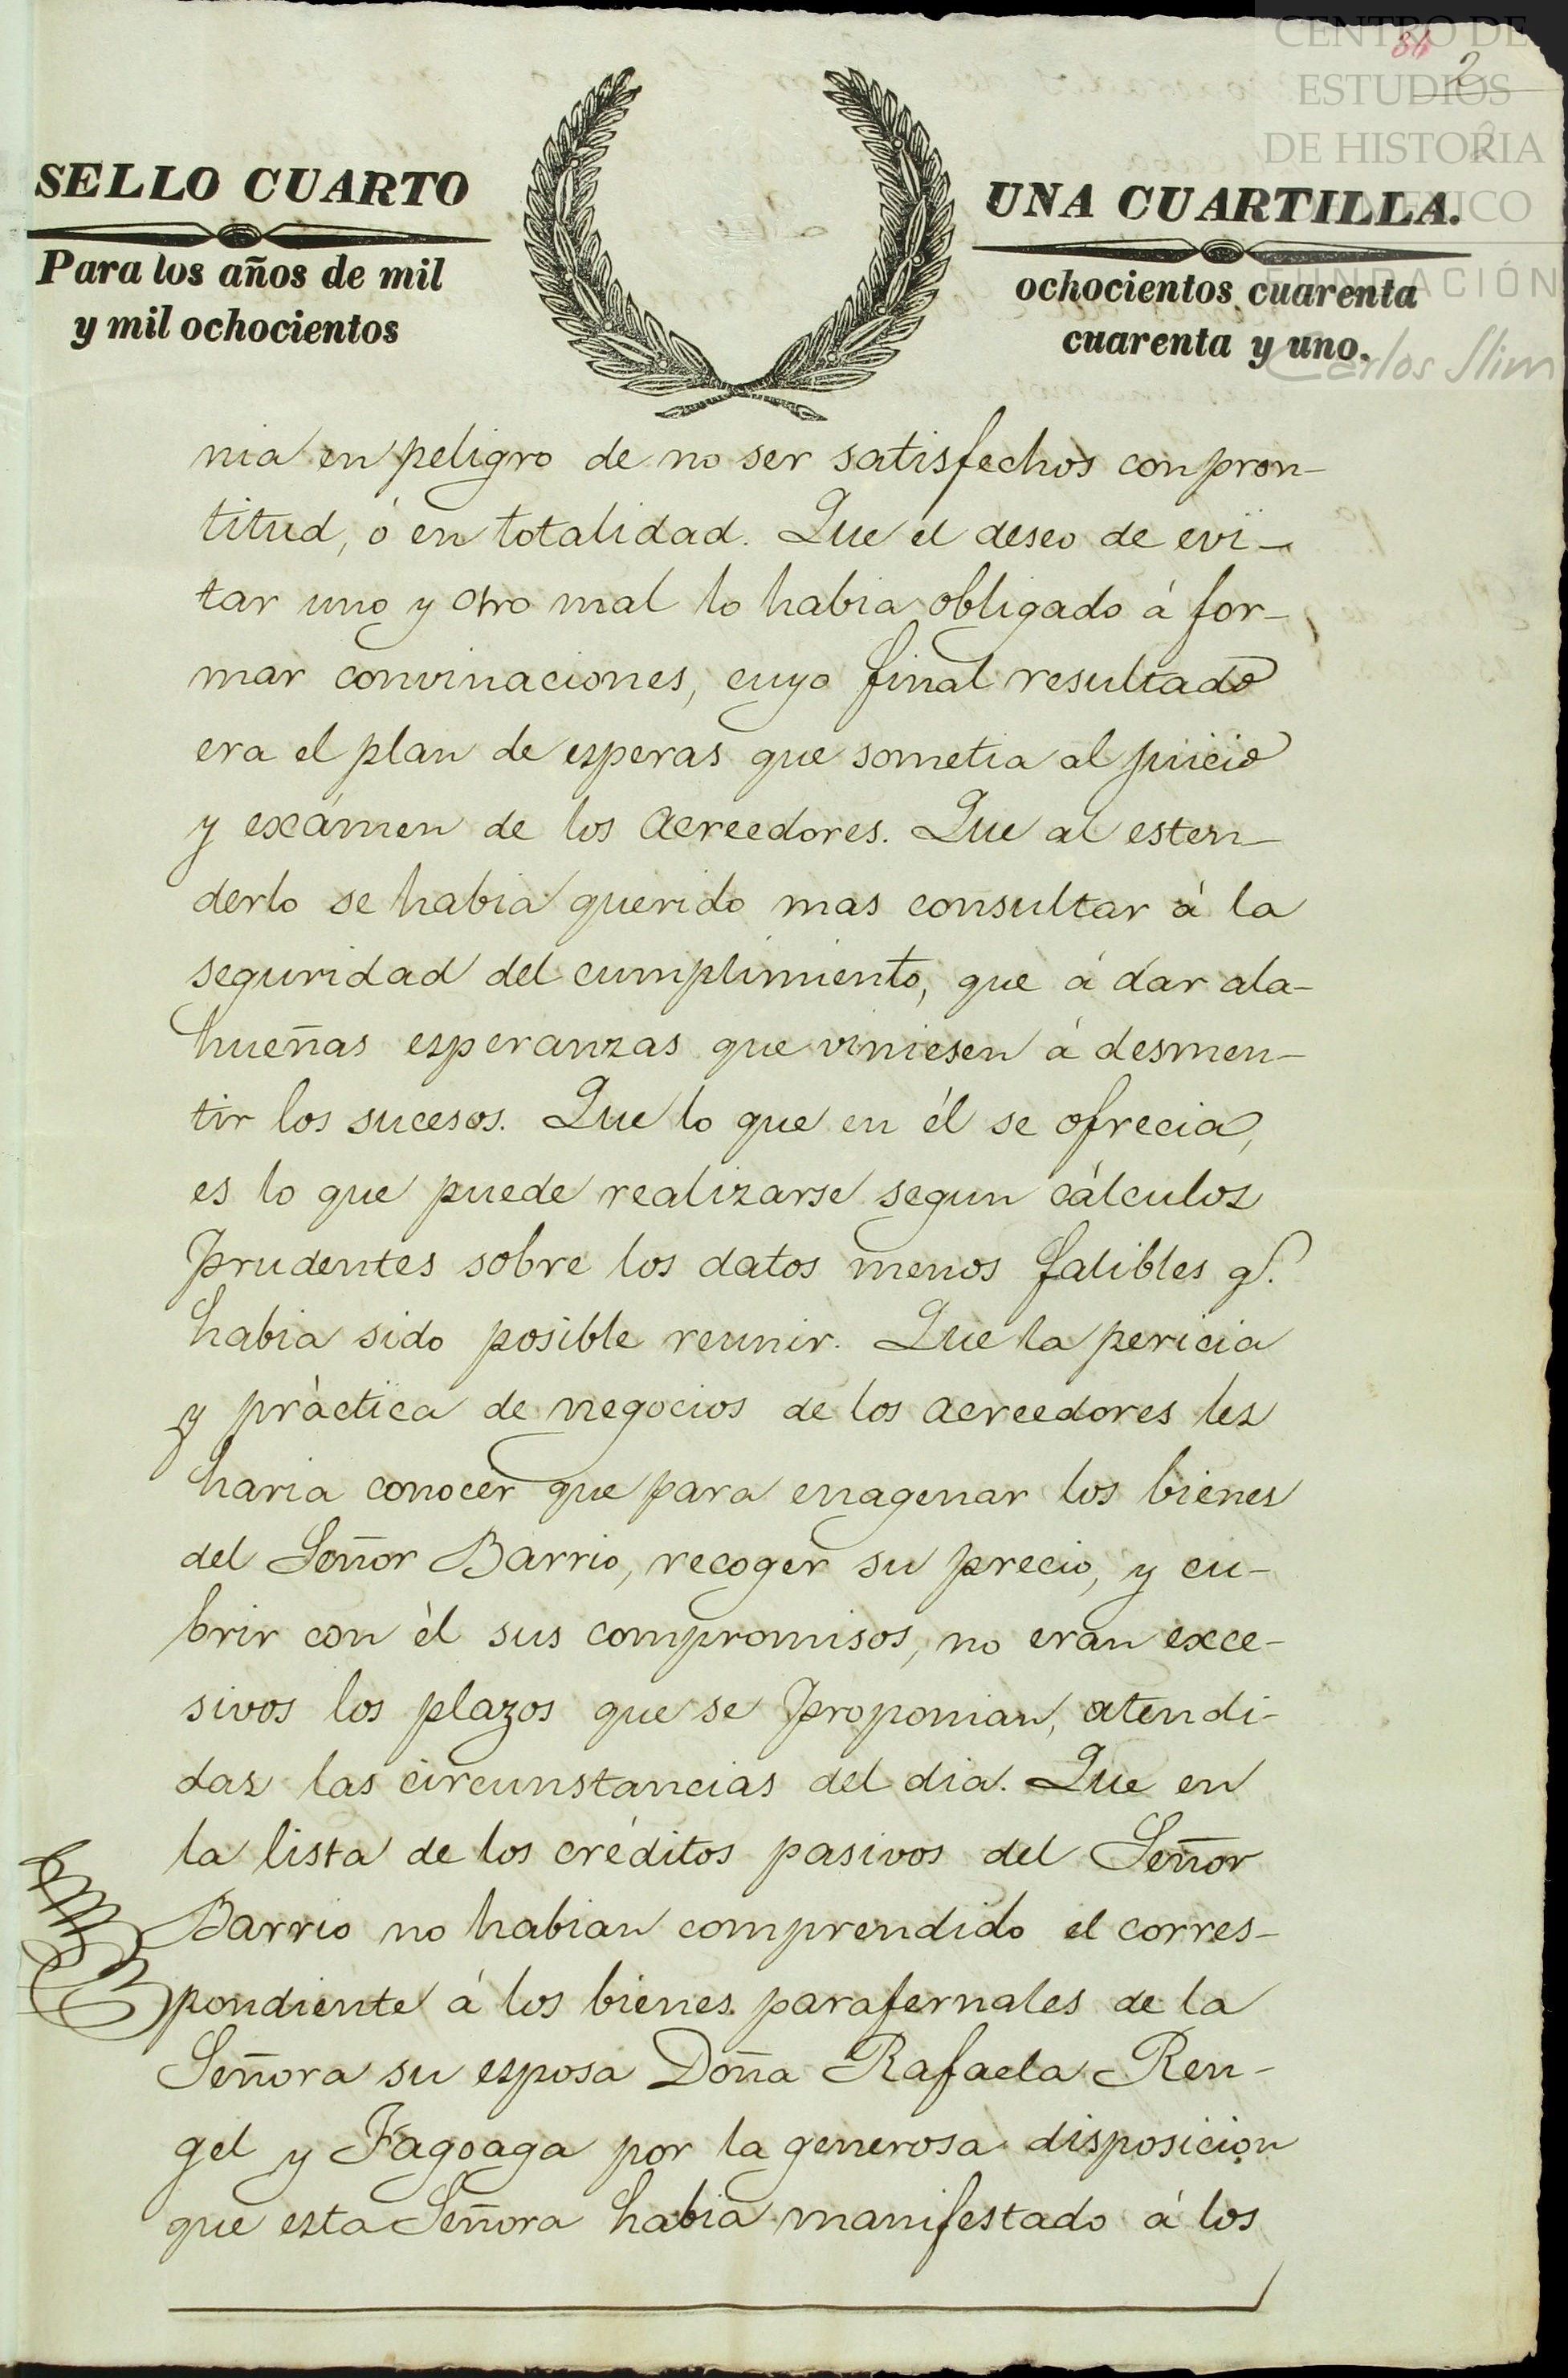 CENTRO DE
ESTUDIOS
DE HISTORIA
DE MÉXICO
FUNDACIÓN
Carlos Slim
86
2
2
SELLO CUARTO
Para los años de mil
y mil ochocientos
UNA CUARTILLA.
ochocientos cuarenta
cuarenta y uno.
nia en peligro de no ser satisfechos con pron-
titud, ó en totalidad. Que el deseo de evi-
tar uno y otro mal lo habia obligado á for-
mar convinaciones, cuyo final resultado
era el plan de esperas que sometia al juicio
y exámen de los Acreedores. Que al esten-
derlo se habia querido mas consultar á la
seguridad del cumplimiento, que á dar ala-
hueñas esperanzas que viniesen á desmen-
tir los sucesos. Que lo que en él se ofrecia,
es lo que puede realizarse segun cálculos
prudentes sobre los datos menos falibles q.
habia sido posible reunir. Que la pericia
y práctica de negocios de los acreedores les
haria conocer que para enagenar los bienes
del Señor Barrio, recoger su precio, y cu-
brir con él sus compromisos, no eran exce-
sivos los plazos que se proponian, atendi-
das las circunstancias del dia. Que en
la lista de los créditos pasivos del Señor
Barrio no habian comprendido el corres-
pondiente á los bienes parafernales de la
Señora su esposa Doña Rafaela Ren-
gel y Fagoaga por la generosa disposicion
que esta Señora habia manifestado á los